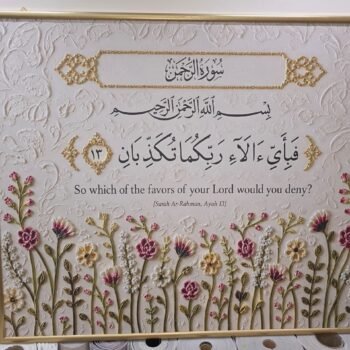 سُورَةُ الرَّحْمَٰن
بِسْمِ اللَّهِ الرَّحْمَٰنِ الرَّحِيمِ
فَبِأَيِّ ءَالَآءِ رَبِّكُمَا تُكَذِّبَانِ ١٣
So which of the favors of your Lord would you deny?
[Surah Ar-Rahman, Ayah 13]